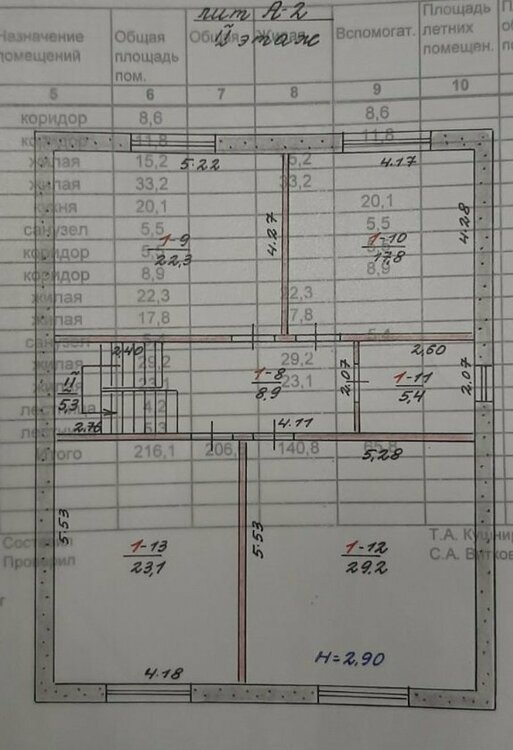 лит А-2
ІІй этаж
Назначение Общая Общая Жилая Вспомогат. Площадь
помещений площадь летних
пом. помещен.
5 6 7 8 9 10
коридор 8,6 8,6
коридор 11,8 11,8
жилая 15,2 15,2
жилая 33,2 33,2
кухня 20,1 20,1
санузел 5,5 5,5
коридор 5,5
коридор 8,9 8,9
жилая 22,3 22,3
жилая 17,8 17,8
санузел 5,4 5,4
жилая 29,2 29,2
жилая 23,1 23,1
лестница 4,2
лестница 5,3
Итого 216,1 206, 140,8 65,8
Составил Т.А. Кушнир
Проверил С.А. Витков
5.22
4.17
4.27
4.28
1-9
22,3
1-10
17,8
2,40
2,60
ІІ
5,3
1-8
8,9
2,07
1-11
5,4
2,07
2.76
4.11
5,28
5.53
5.53
1-13
23,1
1-12
29.2
4.18
H=2,90